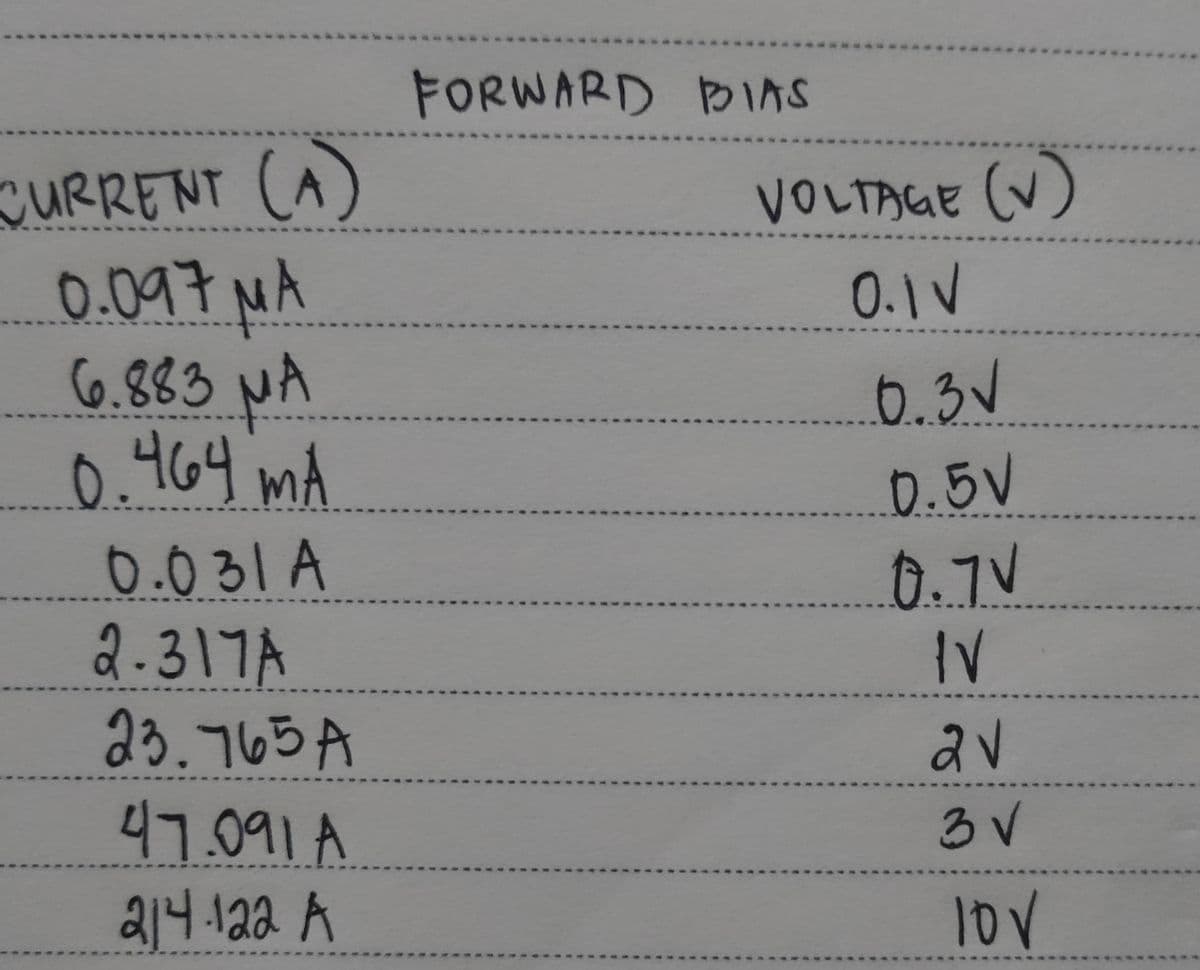 FORWARD BIAS
CURRENT (A) VOLTAGE (V)
0.097 μA 0.1V
6.883 μA 0.3V
0.464 mA 0.5V
0.031 A 0.7V
2.317A 1V
23.765A 2V
47.091 A 3V
214.122 A 10V